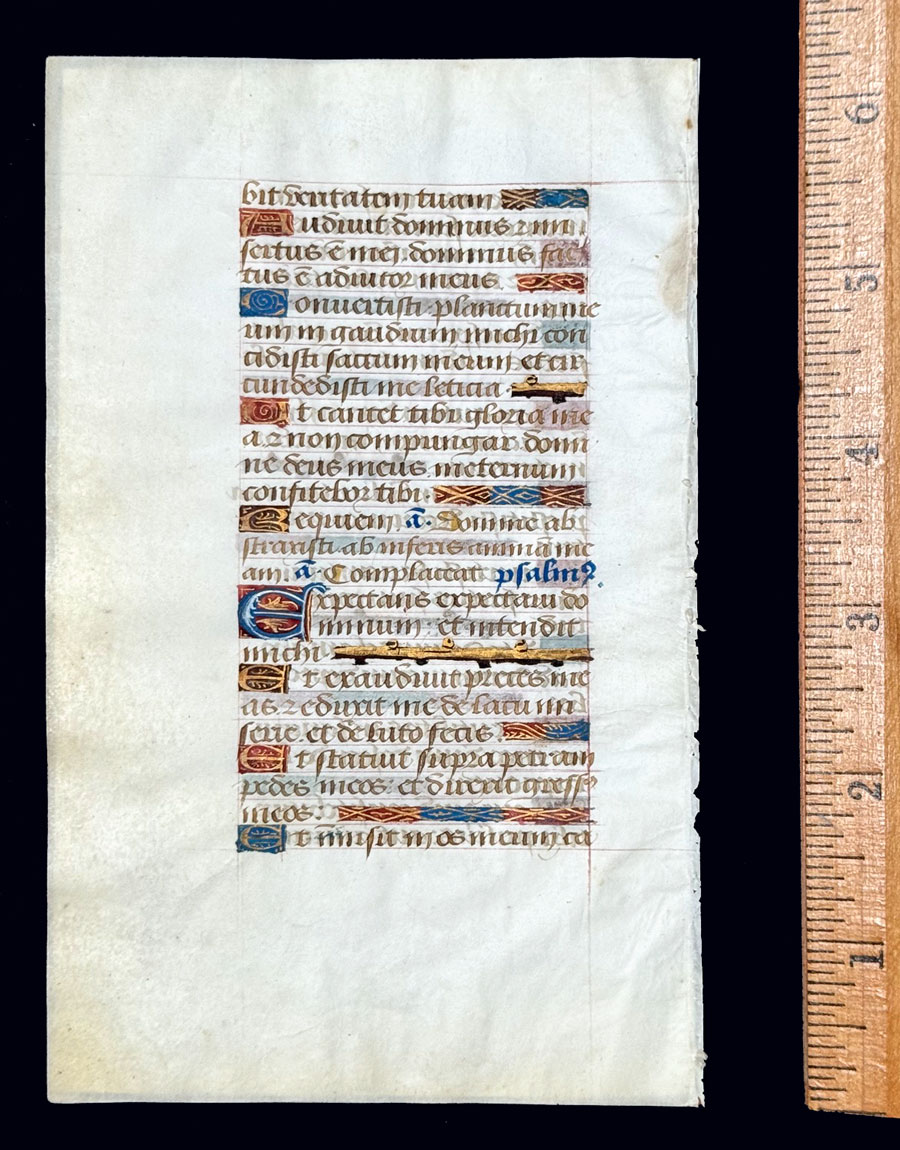 bit veritatem tuam
Audivit dominus ⁊ mi
sertus ē mei. dominus fac
tus ē adiutor meus.
Convertisti planctum me
um in gaudium michi con
cidisti saccum meum et cir
cundedisti me leticia.
Ut cantet tibi gloria me
a ⁊ non compungar domi
ne deus meus in eternum
confitebor tibi.
Requiem ā. Domine ab
straxisti ab inferis animā me
am. ā Complaceat. psalmꝰ.
Expectans expectavi do
minum: et intendit
michi
Et exaudivit preces me
as ⁊ eduxit me de lacu mi
serie et de luto fecis.
Et statuit supra petram
pedes meos: et direxit gressꝰ
meos.
Et īmisit in os meum ca
6
5
4
3
2
1